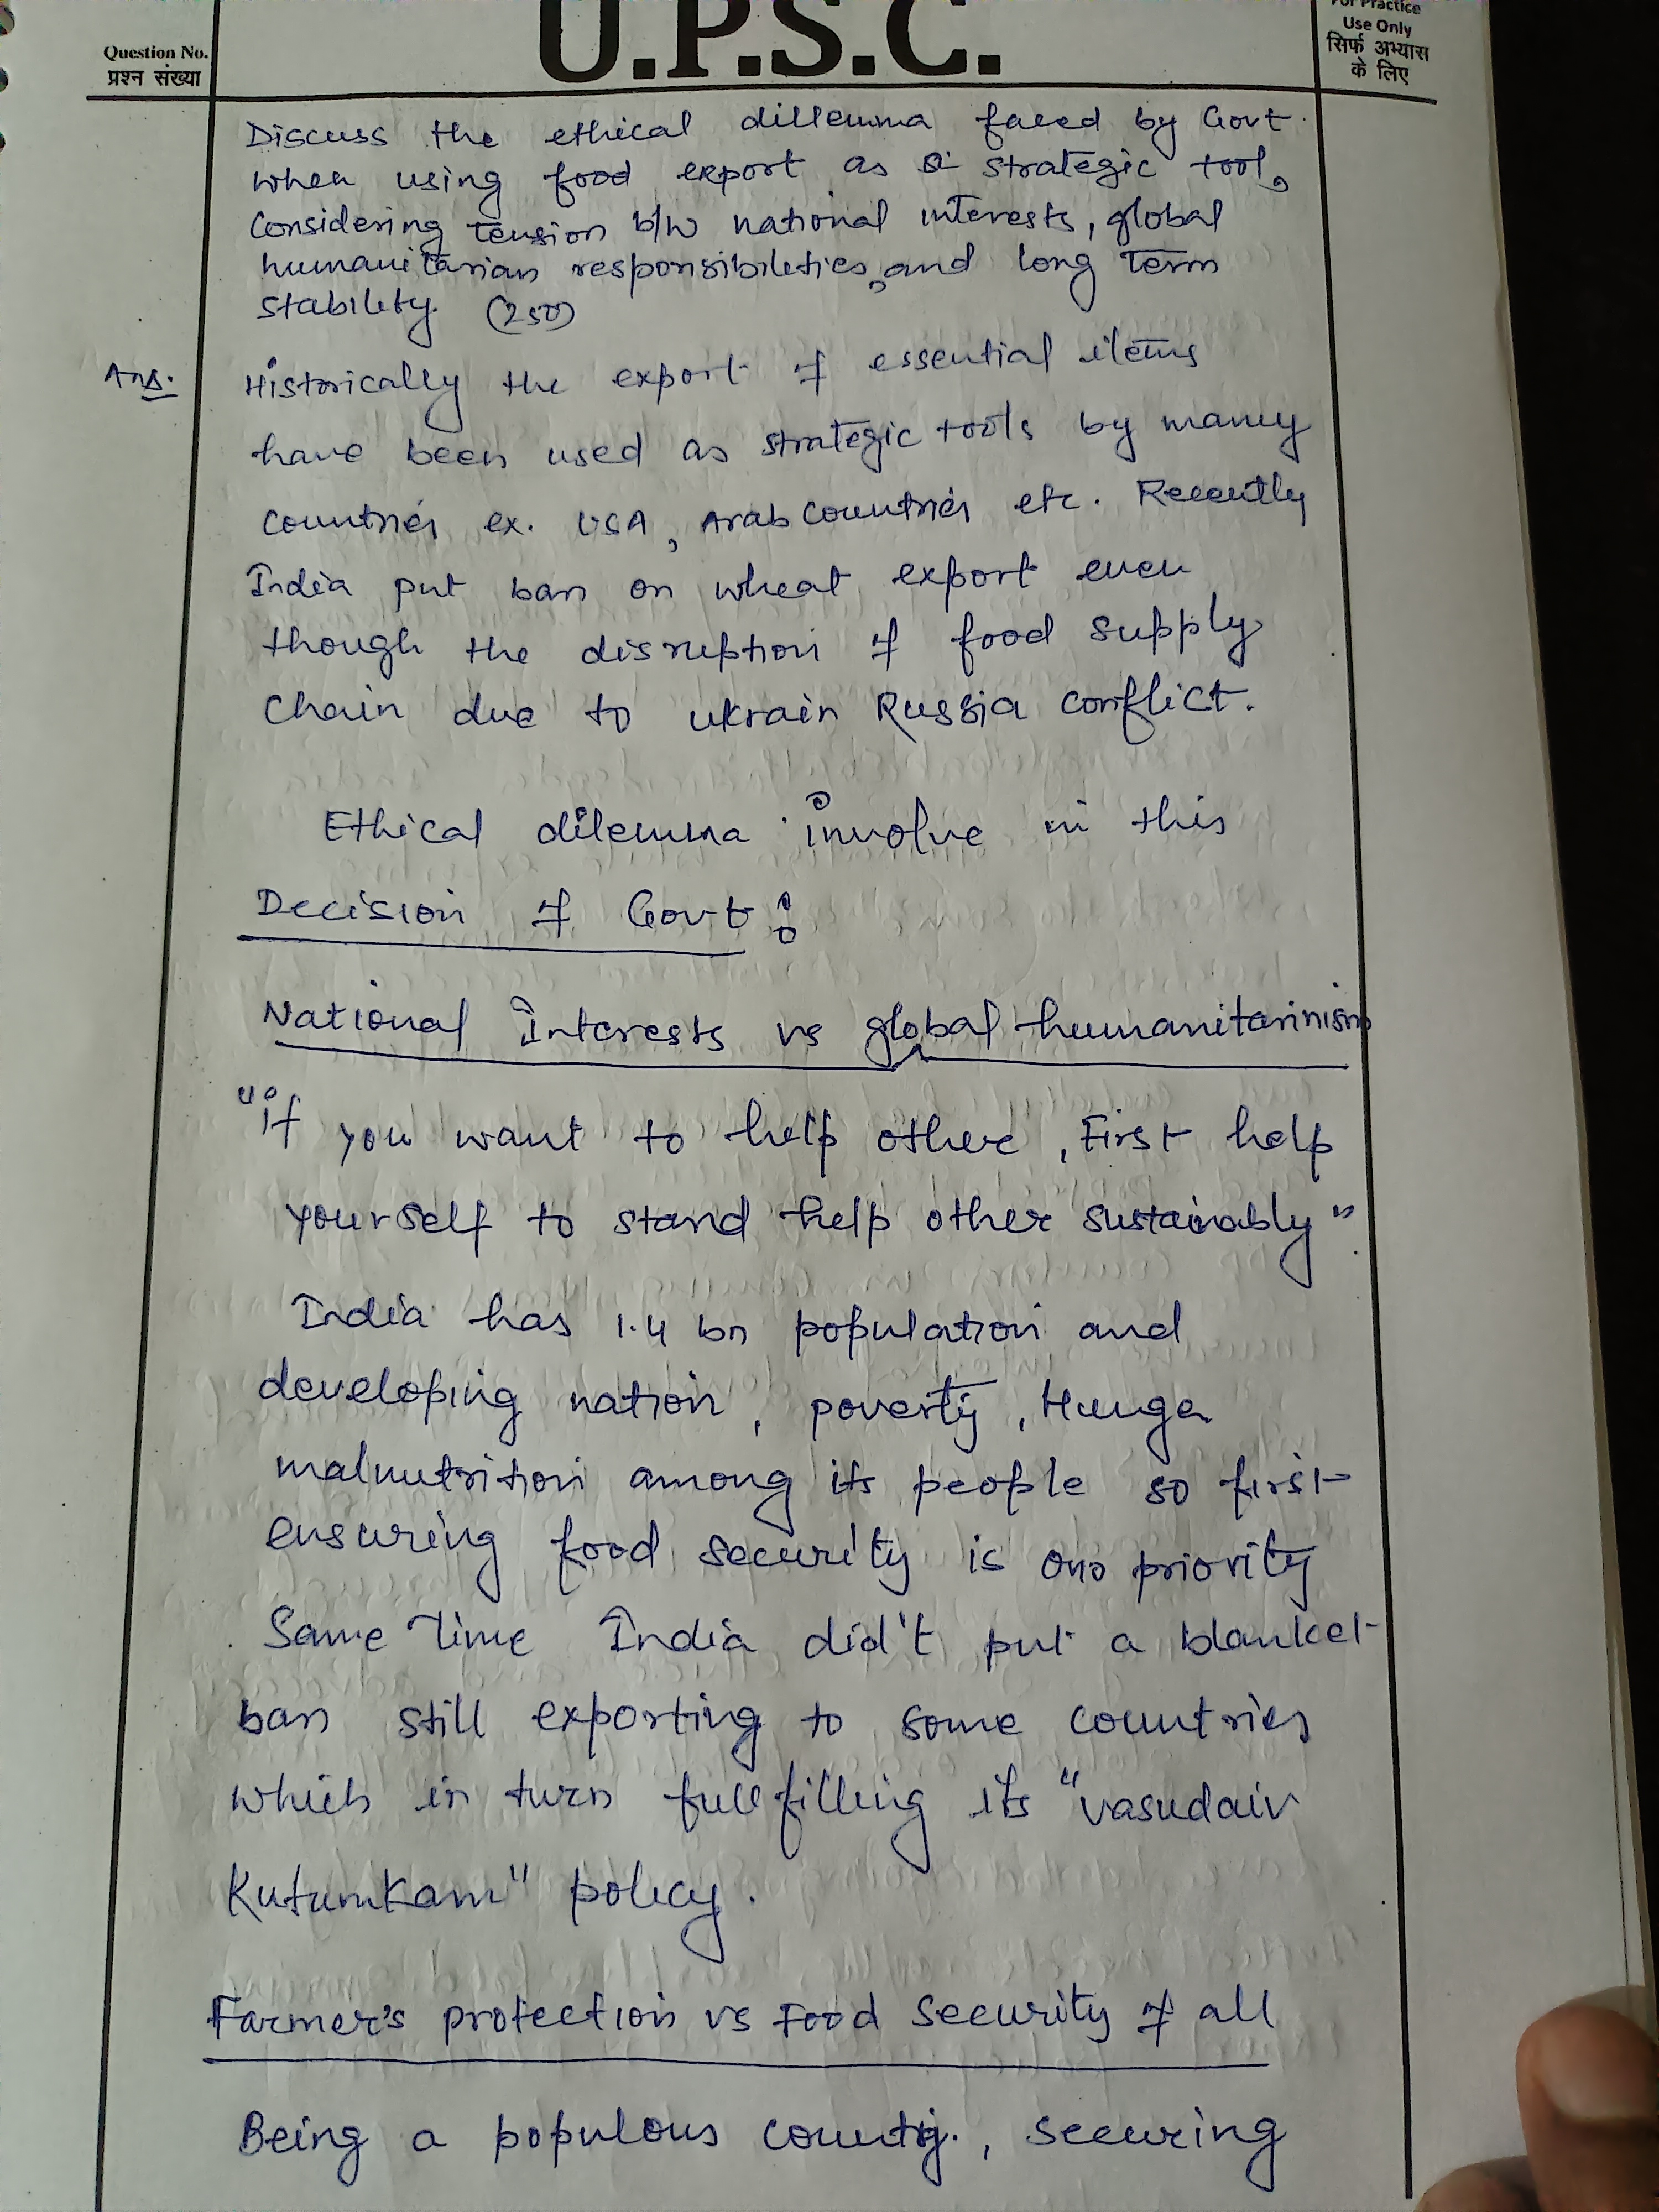 Question No.
प्रश्न संख्या
U.P.S.C.
For Practice
Use Only
सिर्फ अभ्यास
के लिए
Discuss the ethical dillemma faced by Govt.
when using food export as a strategic tool,
Considering tension b/w national interests, global
humanitarian responsibilities, and long term
stability. (250)
Ans.
Historically the export of essential items
have been used as strategic tools by many
countries ex. USA, Arab countries etc. Recently
India put ban on wheat export even
though the disruption of food supply
chain due to ukrain Russia conflict.
Ethical dilemma involve in this
Decision of Govt :
National Interests vs global humanitarinism
"if you want to help other, First help
yourself to stand help other sustainably"
India has 1.4 bn population and
developing nation, poverty, Hunger
malnutrition among its people so first
ensuring food security is our priority
Same Time India did't put a blanket
ban still exporting to some countries
which in turn fullfilling its "vasudaiv
Kutumkam" policy.
Farmer's protection vs Food Security of all
Being a populous country, securing